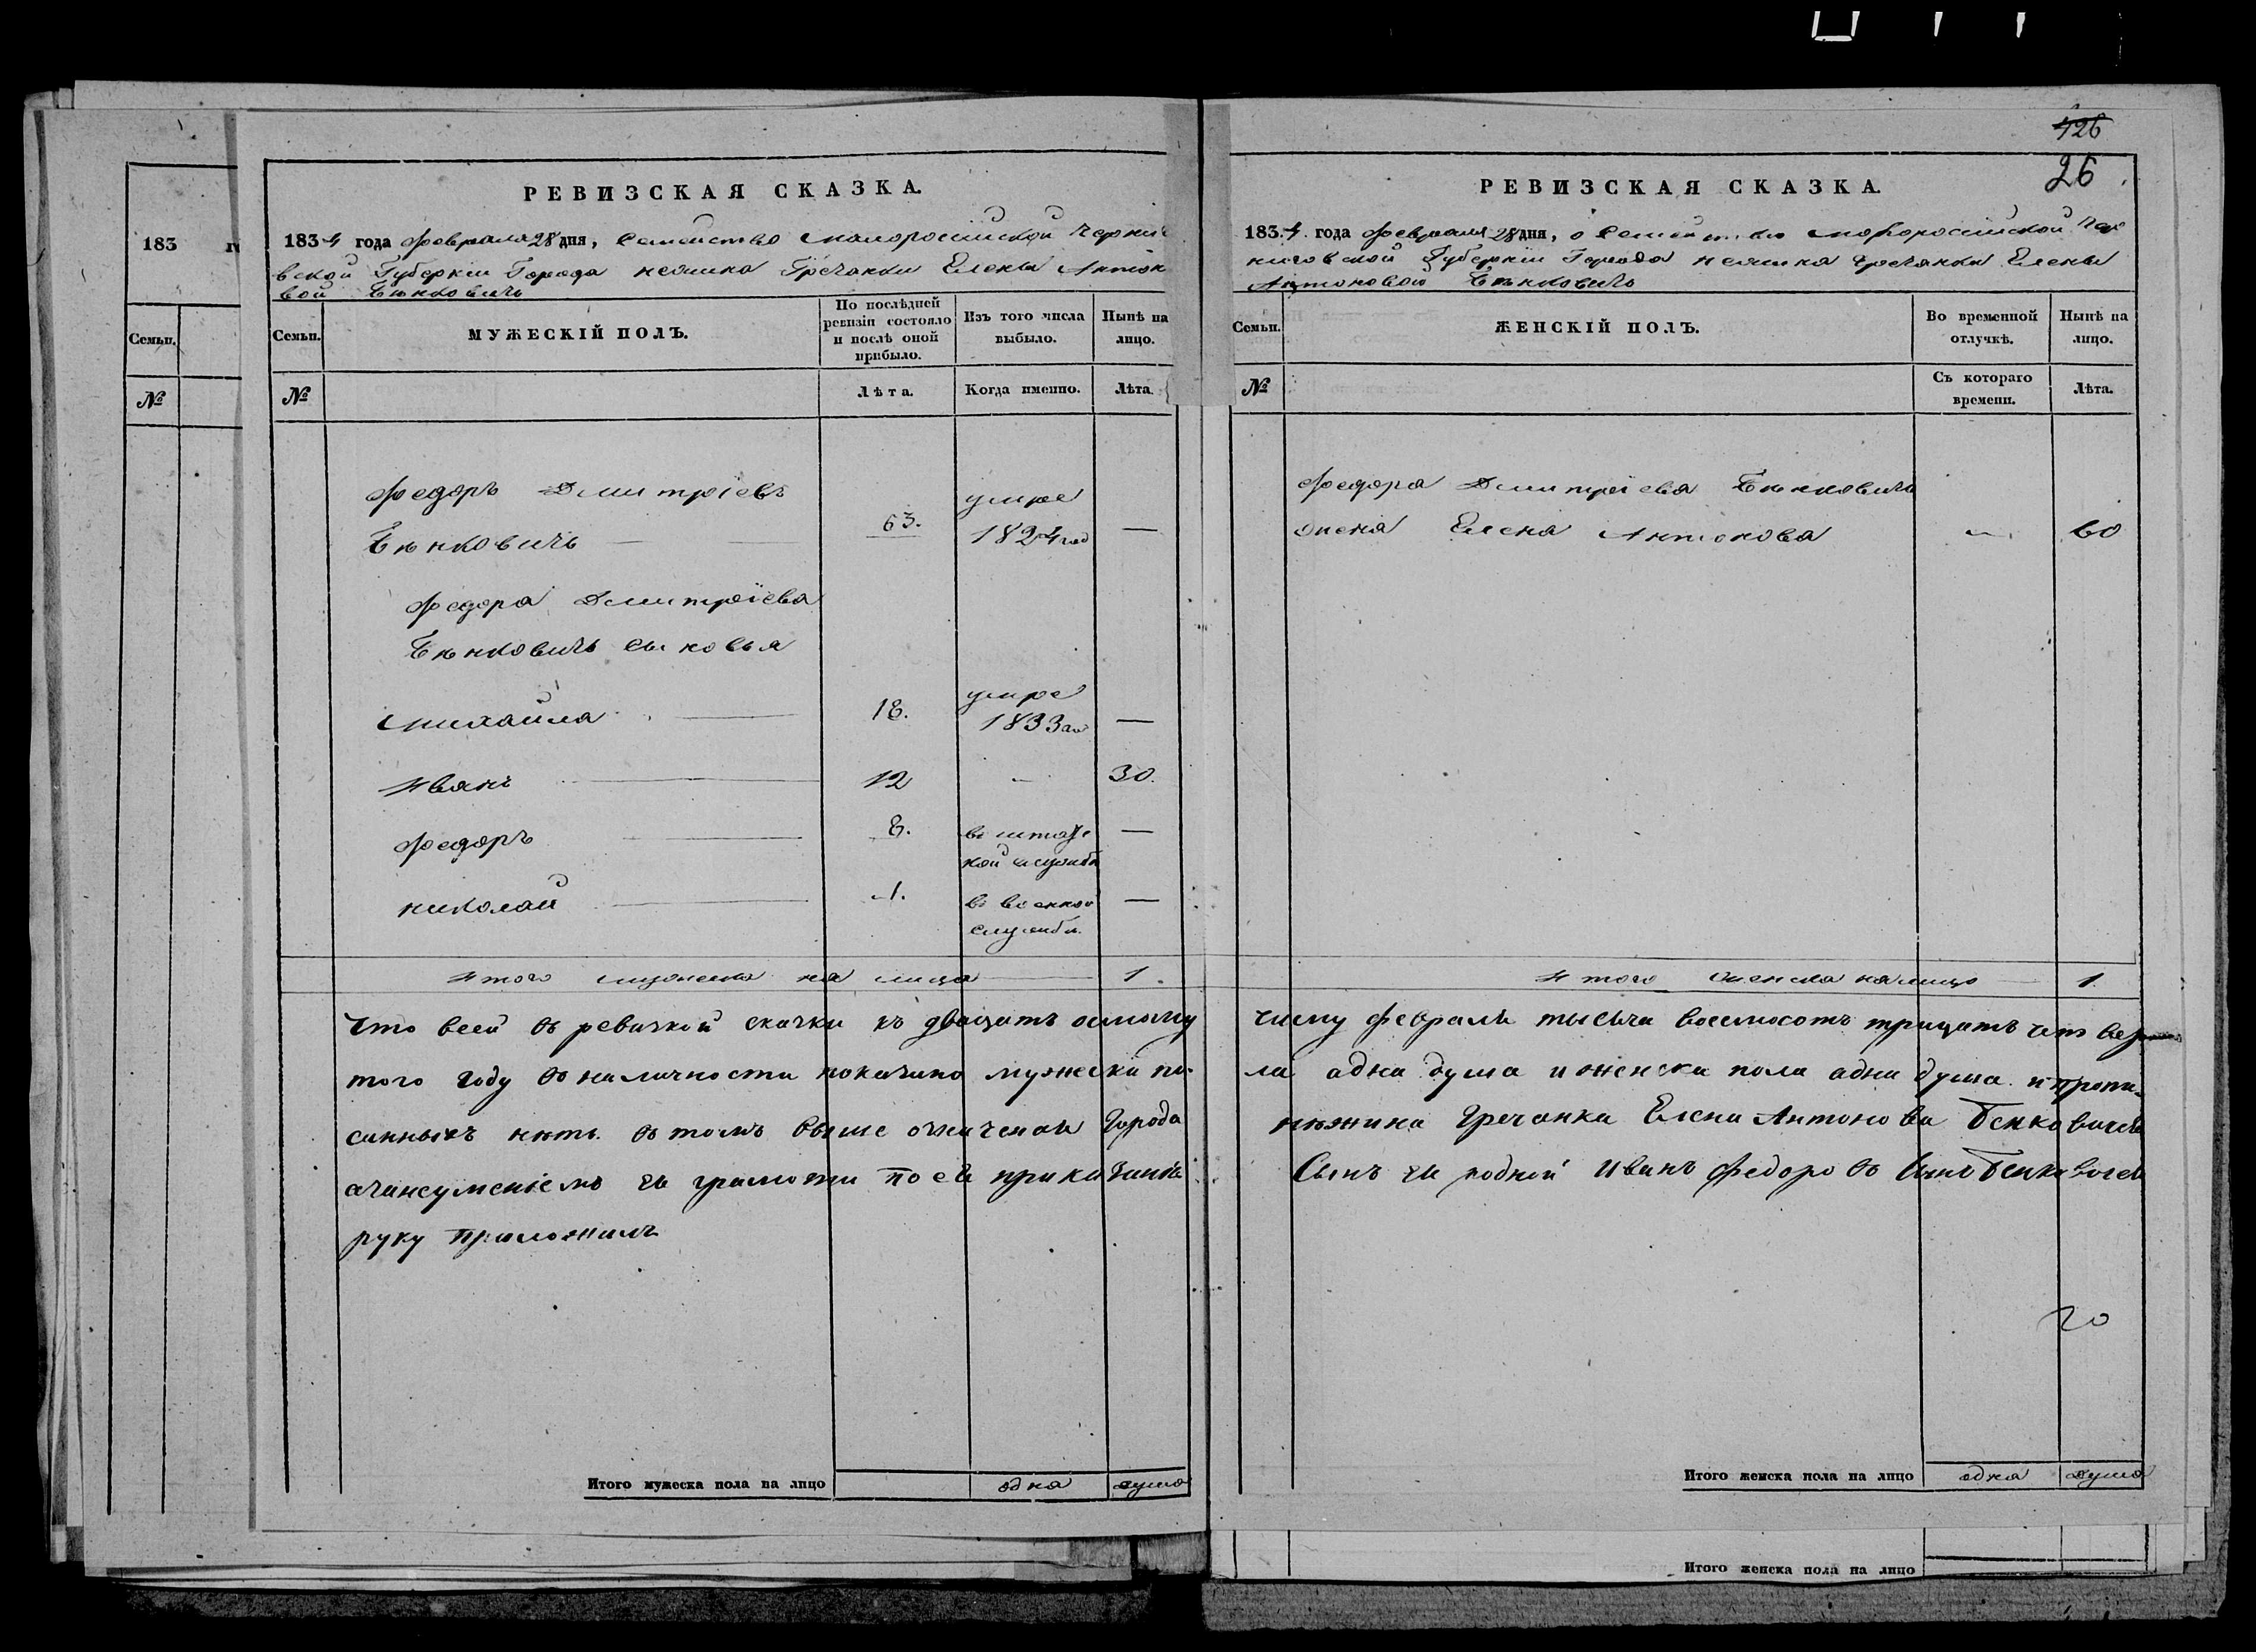 426
26
183
Семьи.
№
РЕВИЗСКАЯ СКАЗКА.
1834 года февраля 28 дня, Семейство малоросійской Черни
вской Губерніи Города нежина Гречанки Елены Антон
вой Бѣнковичь
Семьи.
МУЖЕСКІЙ ПОЛЪ.
По послѣдней ревизіи состояло и послѣ оной прибыло.
Изъ того числа выбыло.
Нынѣ на лицо.
№
Лѣта.
Когда именно.
Лѣта.
Федоръ Дмитріевъ умре
Бѣнковичь — 63. 1824 год —
Федора Дмитріева
Бѣнковичь сыновья
умре
михайла — 18. 1833 —
Иванъ — 12 — 30.
Федоръ — 8. въ —
кой службѣ
николай — 1. въ военной —
службѣ.
Итого мужеска на лицо — 1.
что всей въ ревизкой скаски къ двацать осмому
того году въ наличности показано мужеска по-
санныхъ нѣтъ. въ томъ выше означеной Города
грамоти по ея приказанію
руку приложилъ
Итого мужеска пола на лицо одна душа
РЕВИЗСКАЯ СКАЗКА.
1834. года Февраля 28 дня, о Семействѣ малоросійской Чер
ниговской Губерніи Города нежина гречанки Елены
Антоновой Бѣнковичь
Семьи.
ЖЕНСКІЙ ПОЛЪ.
Во временной отлучкѣ.
Нынѣ на лицо.
№
Съ котораго времени.
Лѣта.
Федора Дмитріева Бѣнковичь
жена Елена Антонова — 60
Итого женска налицо — 1
числу февраля тысеча восемосотъ трицать
ла адна душа и женска пола адна душа. и пропи-
нѣжина Гречанка Елена Антонова Бенковичева
Сынъ ея родной Иванъ Федоровъ сынъ Бенковичев
20
Итого женска пола на лицо одна душа
Итого женска пола на лицо